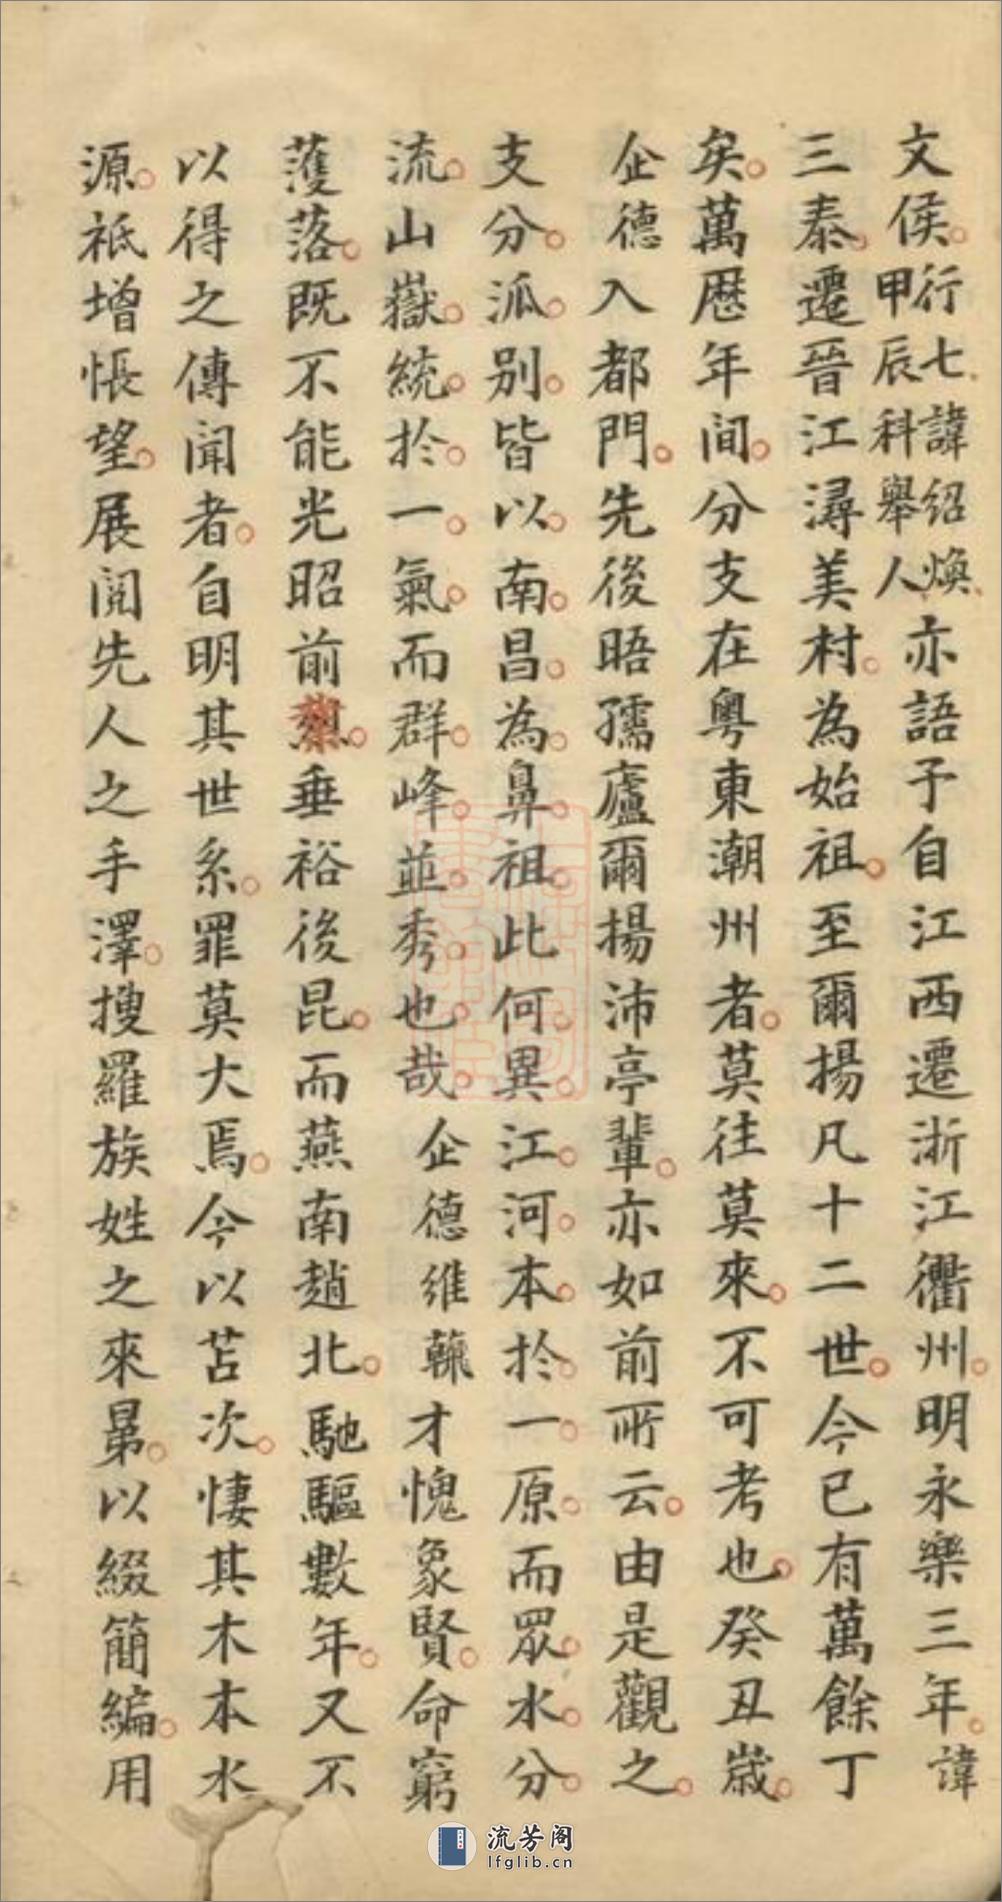 文侯行七諱紹煥甲辰科舉人亦語予自江西遷浙江衢州明永樂三年諱
三泰遷晉江潯美村為始祖至爾揚凡十二世今已有萬餘丁
矣萬歷年间分支在粤東潮州者莫往莫來不可考也癸丑嵗
企德入都門先後晤孺廬爾揚沛亭輩亦如前所云由是觀之
支分泒别皆以南昌為鼻祖此何異江河本扵一原而眾水分
流山嶽統扵一氣而群峰並秀也哉企德維蘓才愧象賢命窮
濩落既不能光昭前烈垂裕後昆而燕南趙北馳驅數年又不
以得之傳聞者自明其世系罪莫大焉今以苫次悽其木本水
源祗增悵望展閱先人之手澤搜羅族姓之來晜以綴簡編用
流芳阁
lfglib.cn